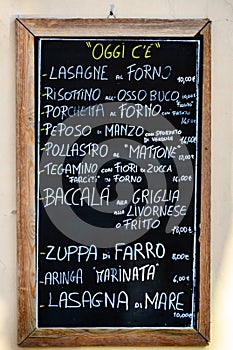 "OGGI C'È"
- LASAGNE AL FORNO 10,00€
- RISOTTINO ALL'OSSO BUCO
- PORCHETTA AL FORNO CON PATATE
- PEPOSO DI MANZO CON SFORMATO
DI VERDURE
- POLLASTRO AL "MATTONE"
- TEGAMINO CON FIORI DI ZUCCA
"FARCITI" AL FORNO
- BACCALÀ ALLA GRIGLIA
ALLA LIVORNESE
O FRITTO 18,00€
- ZUPPA DI FARRO 8,00€
- ARINGA "MARINATA" 6,00€
- LASAGNA DI MARE
10,00€